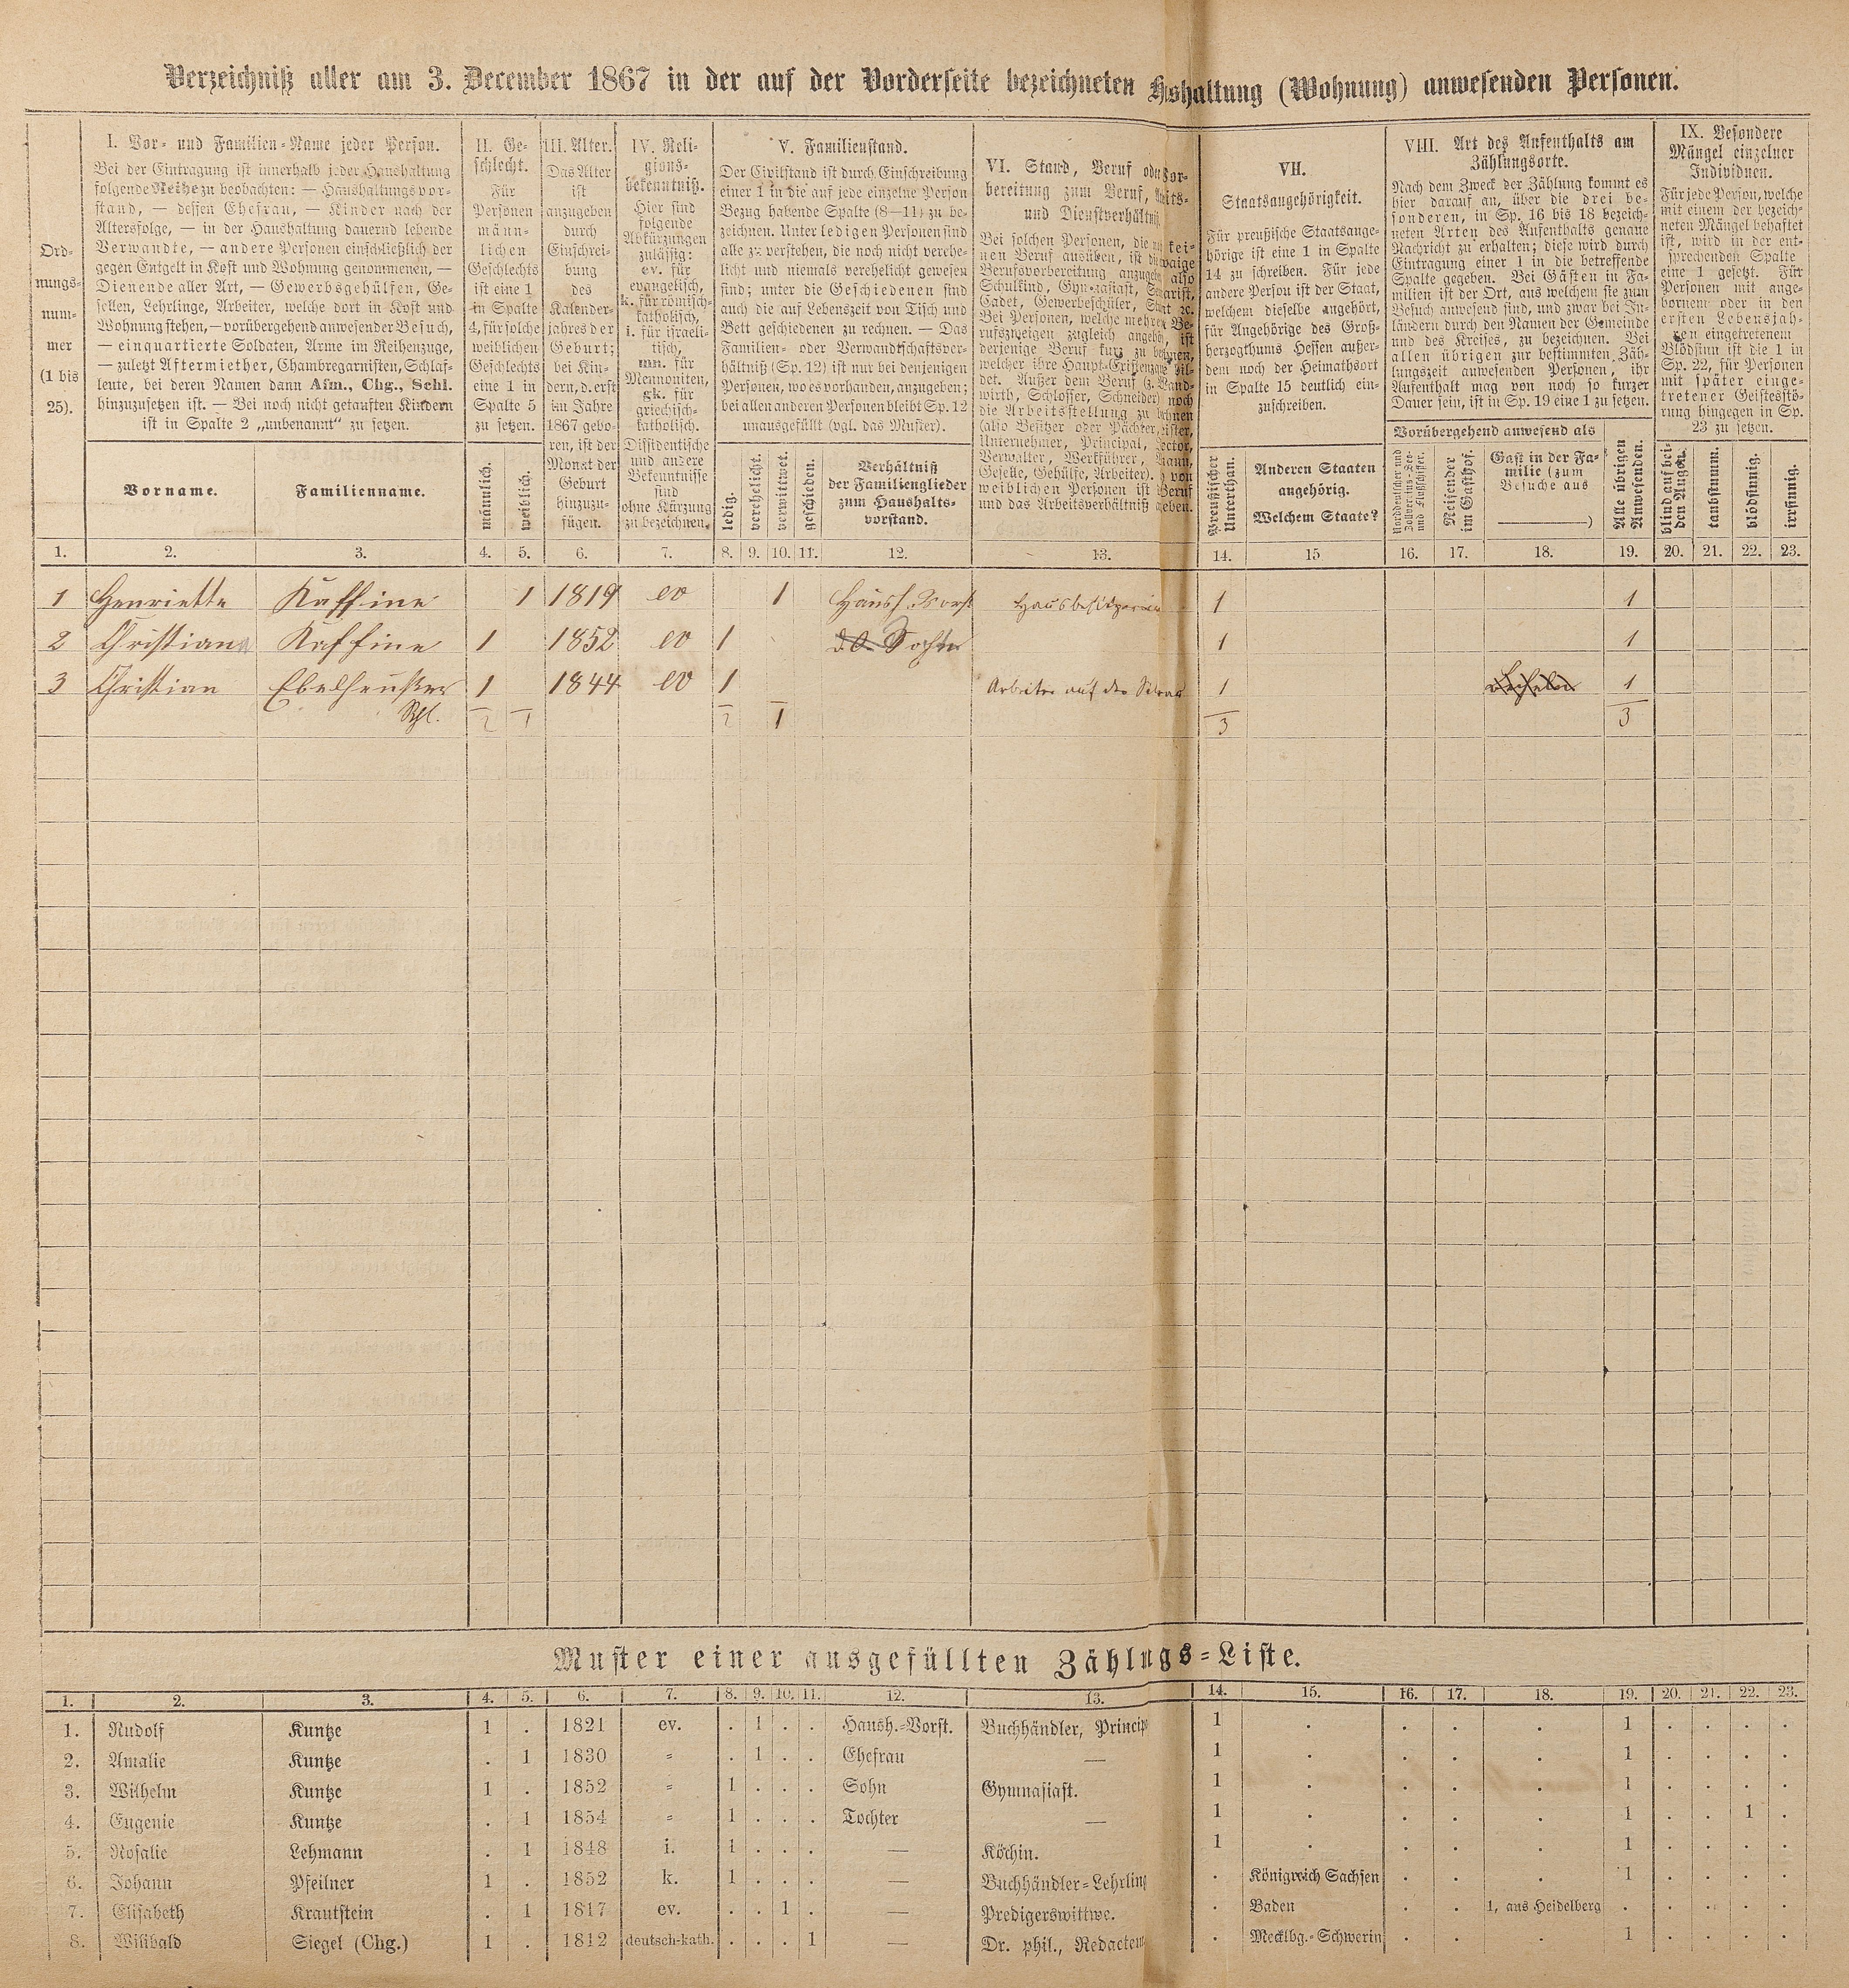 Verzeichniß aller am 3. December 1867 in der auf der Vorderseite bezeichneten Hshaltung (Wohnung) anwesenden Personen.
Ord-
nungs-
num-
mer
(1 bis
25).
I. Vor- und Familien-Name jeder Person.
Bei der Eintragung ist innerhalb jeder Haushaltung
folgende Reihe zu beobachten: — Haushaltungsvor-
stand, — dessen Ehefrau, — Kinder nach der
Altersfolge, — in der Haushaltung dauernd lebende
Verwandte, — andere Personen einschließlich der
gegen Entgelt in Kost und Wohnung genommenen, —
Dienende aller Art, — Gewerbsgehülfen, Ge-
sellen, Lehrlinge, Arbeiter, welche dort in Kost und
Wohnung stehen, — vorübergehend anwesender Besuch,
— einquartierte Soldaten, Arme im Reihenzuge,
— zuletzt Aftermiether, Chambregarnisten, Schlaf-
leute, bei deren Namen dann Afm., Chg., Schl.
hinzuzusetzen ist. — Bei noch nicht getauften Kindern
ist in Spalte 2 „unbenannt“ zu setzen.
Vorname.
Familienname.
II. Ge-
schlecht.
Für
Personen
männ-
lichen
Geschlechts
ist eine 1
in Spalte
4, für solche
weiblichen
Geschlechts
eine 1 in
Spalte 5
zu setzen.
männlich.
weiblich.
III. Alter.
Das Alter
ist
anzugeben
durch
Einschrei-
bung
des
Kalender-
jahres der
Geburt;
bei Kin-
dern, d. erst
im Jahre
1867 gebo-
ren, ist der
Monat der
Geburt
hinzuzu-
fügen.
IV. Reli-
gions-
bekenntniß.
Hier sind
folgende
Abkürzungen
zulässig:
ev. für
evangelisch,
k. für römisch-
katholisch,
i. für israeli-
tisch,
mn. für
Mennoniten,
gk. für
griechisch-
katholisch.
Dissidentische
und andere
Bekenntnisse
sind
ohne Kürzung
zu bezeichnen.
V. Familienstand.
Der Civilstand ist durch Einschreibung
einer 1 in die auf jede einzelne Person
Bezug habende Spalte (8—11) zu be-
zeichnen. Unter ledigen Personen sind
alle zu verstehen, die noch nicht verehe-
licht und niemals verehelicht gewesen
sind; unter die Geschiedenen sind
auch die auf Lebenszeit von Tisch und
Bett geschiedenen zu rechnen. — Das
Familien- oder Verwandtschaftsver-
hältniß (Sp. 12) ist nur bei denjenigen
Personen, wo es vorhanden, anzugeben;
bei allen anderen Personen bleibt Sp. 12
unausgefüllt (vgl. das Muster).
ledig.
verehelicht.
verwittwet.
geschieden.
Verhältniß
der Familienglieder
zum Haushalts-
vorstand.
VI. Stand, Beruf oder Vor-
bereitung zum Beruf,
und Dienstverhältniß
Bei solchen Personen, die kei-
nen Beruf ausüben, ist
Berufsvorbereitung anzugeben, also
Schulkind, Gymnasiast,
Cadet, Gewerbeschüler,
Bei Personen, welche mehren Be-
rufszweigen zugleich angehör, ist
derjenige Beruf kurz zu
welcher ihre Haupt-Existenzque bil-
det. Außer dem Beruf (z.
wirth, Schlosser, Schneider) noch
die Arbeitsstellung zu
(also Besitzer oder Pächter,
Unternehmer, Principal,
Verwalter, Werkführer,
Geselle, Gehülfe, Arbeiter). von
weiblichen Personen ist Beruf
und das Arbeitsverhältniß geben.
VII.
Staatsangehörigkeit.
Für preußische Staatsange-
hörige ist eine 1 in Spalte
14 zu schreiben. Für jede
andere Person ist der Staat,
welchem dieselbe angehört,
für Angehörige des Groß-
herzogthums Hessen außer-
dem noch der Heimathsort
in Spalte 15 deutlich ein-
zuschreiben.
Preußischer
Unterthan.
Anderen Staaten
angehörig.
Welchem Staate?
VIII. Art des Aufenthalts am
Zählungsorte.
Nach dem Zweck der Zählung kommt es
hier darauf an, über die drei be-
sonderen, in Sp. 16 bis 18 bezeich-
neten Arten des Aufenthalts genaue
Nachricht zu erhalten; diese wird durch
Eintragung einer 1 in die betreffende
Spalte gegeben. Bei Gästen in Fa-
milien ist der Ort, aus welchem sie zum
Besuch anwesend sind, und zwar bei In-
ländern durch den Namen der Gemeinde
und des Kreises, zu bezeichnen. Bei
allen übrigen zur bestimmten Zäh-
lungszeit anwesenden Personen, ihr
Aufenthalt mag von noch so kurzer
Dauer sein, ist in Sp. 19 eine 1 zu setzen.
Vorübergehend anwesend als
Norddeutscher und
Zollvereins-See-
und Flußschiffer.
Reisender
im Gasthof.
Gast in der Fa-
milie (zum
Besuche aus
)
Alle übrigen
Anwesenden.
IX. Besondere
Mängel einzelner
Individuen.
Für jede Person, welche
mit einem der bezeich-
neten Mängel behaftet
ist, wird in der ent-
sprechenden Spalte
eine 1 gesetzt. Für
Personen mit ange-
bornem oder in den
ersten Lebensjah-
ren eingetretenem
Blödsinn ist die 1 in
Sp. 22, für Personen
mit später einge-
tretener Geistesstö-
rung hingegen in Sp.
23 zu setzen.
blind auf bei-
den Augen.
taubstumm.
blödsinnig.
irrsinnig.
1. 2. 3. 4. 5. 6. 7. 8. 9. 10. 11. 12. 13. 14. 15 16. 17. 18. 19. 20. 21. 22. 23.
1 Henriette Kaffine 1 1819 ev 1 Haush. Vorst Hausbesitzerin 1 1
2 Christian Kaffine 1 1852 ev 1 1 1
3 Christian 1 1844 ev 1 Arbeiter auf der 1 1
Schl. 2 1 2 1 3 3
Muster einer ausgefüllten Zählngs-Liste.
1. 2. 3. 4. 5. 6. 7. 8. 9. 10. 11. 12. 13. 14. 15. 16. 17. 18. 19. 20. 21. 22. 23.
1. Rudolf Kuntze 1 . 1821 ev. . 1 . . Haush.-Vorst. Buchhändler, Princip 1 . . . . 1 . . . .
2. Amalie Kuntze . 1 1830 = . 1 . . Ehefrau — 1 . . . . 1 . . . .
3. Wilhelm Kuntze 1 . 1852 = 1 . . . Sohn Gymnasiast. 1 . . . . 1 . . . .
4. Eugenie Kuntze . 1 1854 = 1 . . . Tochter — 1 . . . . 1 . . 1 .
5. Rosalie Lehmann . 1 1848 i. 1 . . . — Köchin. 1 . . . . 1 . . . .
6. Johann Pfeilner 1 . 1852 k. 1 . . . — Buchhändler-Lehrling . Königreich Sachsen . . . 1 . . . .
7. Elisabeth Krautstein . 1 1817 ev. . . 1 . — Predigerswittwe. . Baden . . 1, aus Heidelberg . . . . .
8. Wilibald Siegel (Chg.) 1 . 1812 deutsch-kath. . . . 1 — Dr. phil., Redacteu . Mecklbg.-Schwerin . . . 1 . . . .